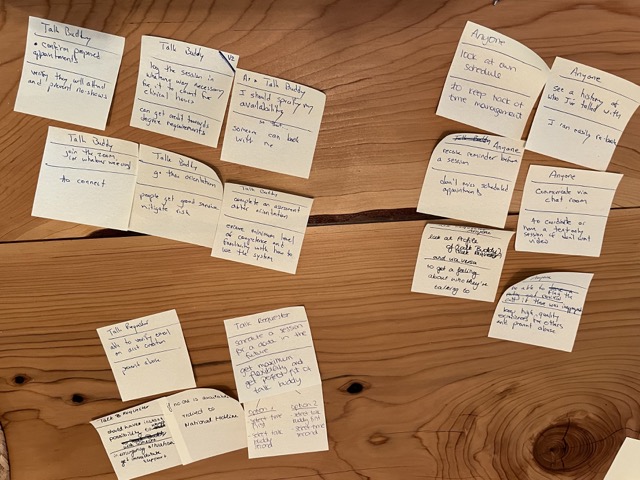 Talk Buddy
• confirm proposed
appointments
verify they will attend
and prevent no-shows
Talk Buddy
V2
log the session in
whatever way necessary
for it to count for
clinical hours
can get credit towards
degree requirements
Talk Buddy
I should specify my
availability
so that
someone can book
with me
Talk Buddy
join the zoom,
(or whatever we use)
to connect
Talk Buddy
go thru orientation
people get good service
mitigate risk
Talk Buddy
complete an assessment
after orientation
ensure minimum level
of competence and
familiarity with how to
use the system
Anyone
look at own
schedule
to keep track of
time management
Anyone
see a history of
who I've talked with
I can easily re-book
Anyone
receive reminder before
a session
don't miss scheduled
appointments
Anyone
Communicate via
chat room
to coordinate or
have a text-only
session if don't want
video
Anyone
look at Profile
of Talk Buddy
Talk Requester
and vice versa
to get a feeling
about who they're
talking to
Anyone
be able to
if there was
keep high quality
experiences for others
and prevent abuse
Talk Requester
able to verify email
on acct creation
prevent abuse
Talk Requester
schedule a session
for a date in the
future
get maximum
flexibility and
get perfect fit of
talk buddy
option 1
select time
first
select talk
buddy
second
option 2
select talk
buddy first
select time
second
Talk Requester
should have instant
possibility
emergency situation
get immediate
support
if no one is available
routed to
National Hotline